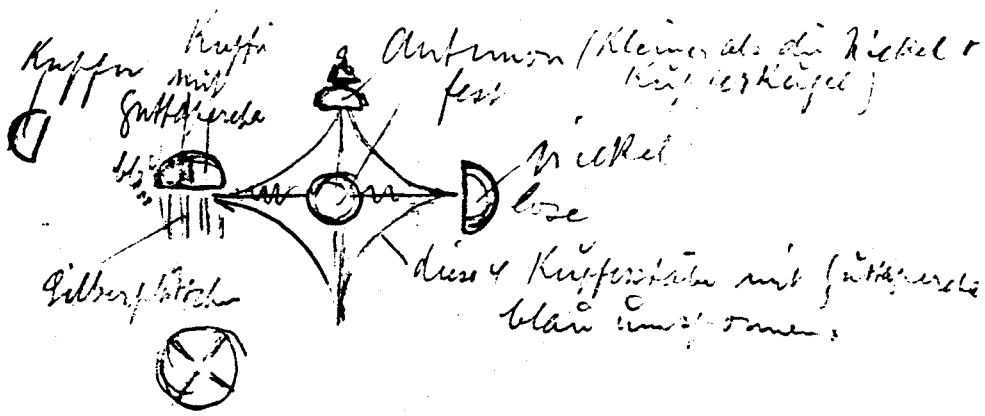 Kupfer
Kupfer
mit
Guttapercha
Antimon (Kleiner als die Nickel +
fest Kupferkugel)
Nickel
lose
Silberplättchen
diese 4 Kupferstäbe mit Guttapercha
blau umsponnen.